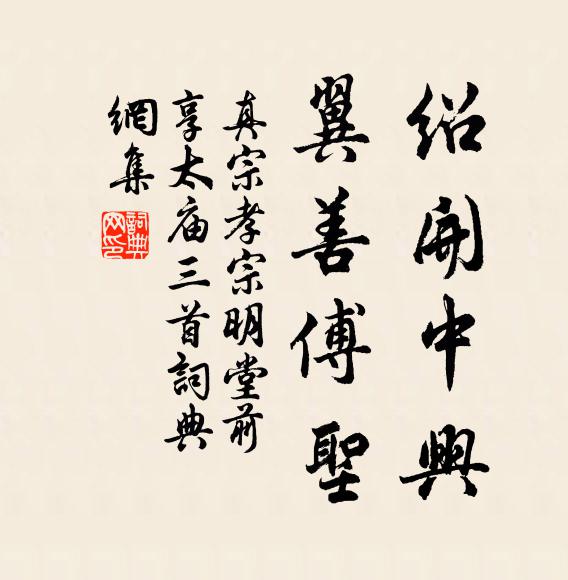 紹開中興
翼善傅聖
真宗孝宗明堂前
享太庙三首詞典
網集
詞典
网印